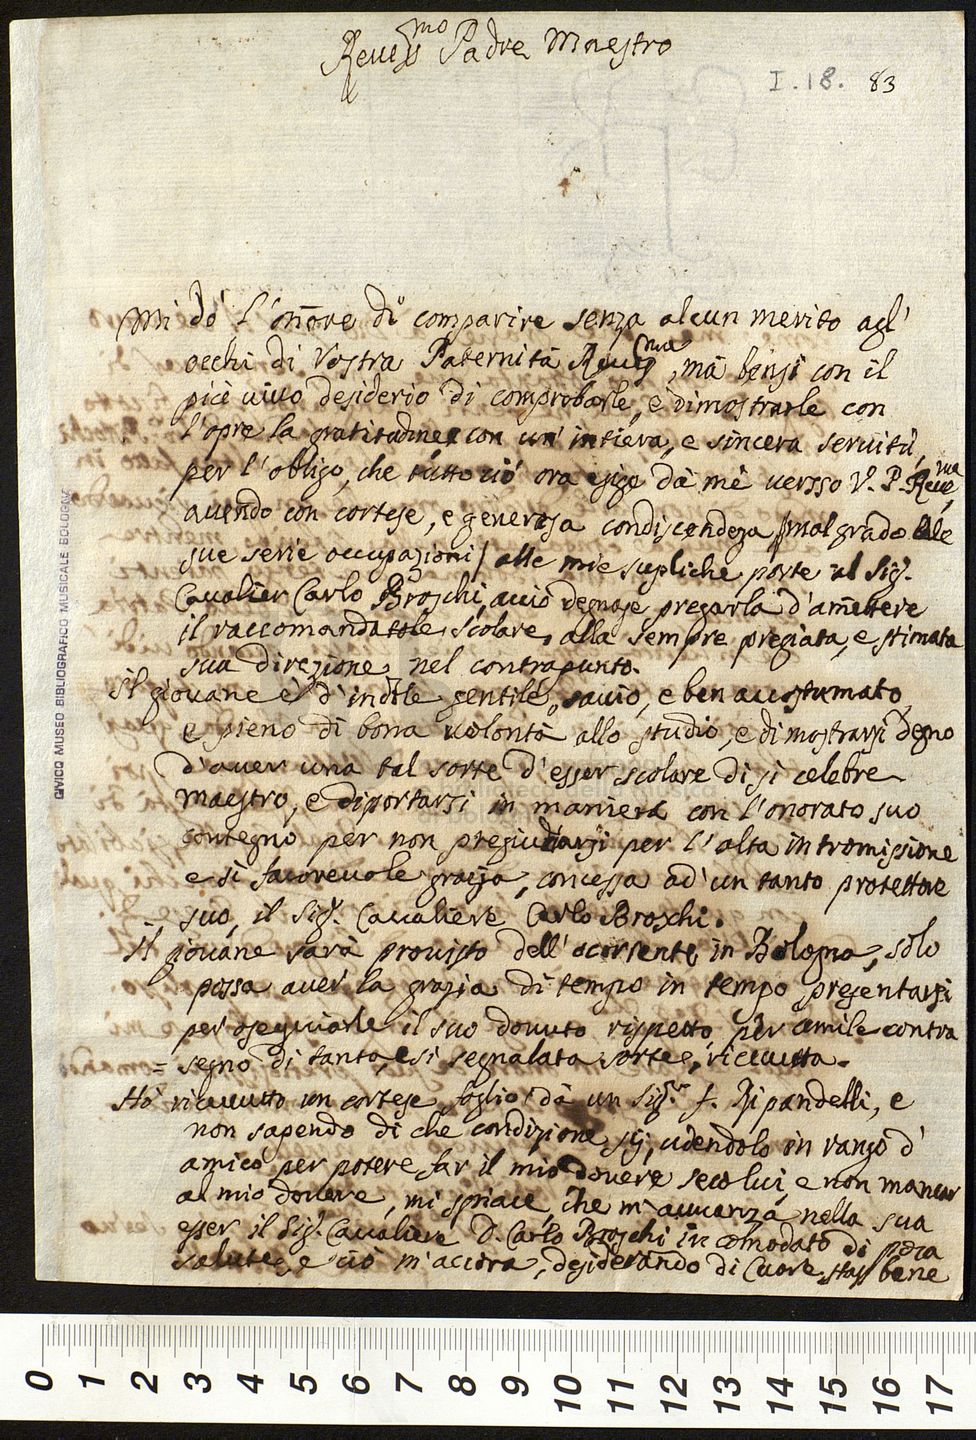 Reverss.mo Padre Maestro
I.18. 83
Mi dò l'onnore di comparire senza alcun merito agl'
occhi di Vostra Paternità Reverss.ma, mà bensi con il
più vivo desiderio di comprobarle, e dimostrarle con
l'opre la gratitudine, con un' intiera, e sincera servitù,
per l'obligo, che tutto ciò ora esige dà mè versso V. P. Reve.ma
avendo con cortese, e generosa condiscendeza /malgrado le
sue serie occupazioni/ alle mie supliche porte al Sig.
Cavalier Carlo Broschi, acciò degnase pregarla d'amettere
il raccomandatole scolare, alla sempre pregiata, e stimata
sua direzione, nel contrapunto.
Il giovane è d'indole gentile, savio, e ben accostumato,
e pieno di bona volontà allo studio, e di mostrarsi degno
d'aver una tal sorte d'esser scolare di sì celebre
maestro, e diportarsi in maniera con l'onorato suo
contegno per non pregiudicarsi per l'alta intromissione
e sì favorevole grazia, concessa ad'un tanto protettore
suo, il Sig. Cavaliere Carlo Broschi.
Il giovane sarà provisto dell'ocorente in Bologna, solo
possa aver la grazia di tempo in tempo presentarsi
per oseguiarle il suo dovuto rispetto, per umile contra
= segno di tanta, e sì segnalata sorte, ricevutta.
Hò ricevutto un cortese foglio dà un Sig.r f. Ripandelli, e
non sapendo di che condizione sij, vdendolo in rango d'
amico per potere far il mio dovere seco lui, e non mancar
al mio dovere, mi spiace, che m'avvanza nella sua
esser il Sig. Cavaliere D. Carlo Broschi incomodato di
salute, e ciò m'accora, desiderando di Cuore, stass bene
CIVICO MUSEO BIBLIOGRAFICO MUSICALE BOLOGNA
0 1 2 3 4 5 6 7 8 9 10 11 12 13 14 15 16 17